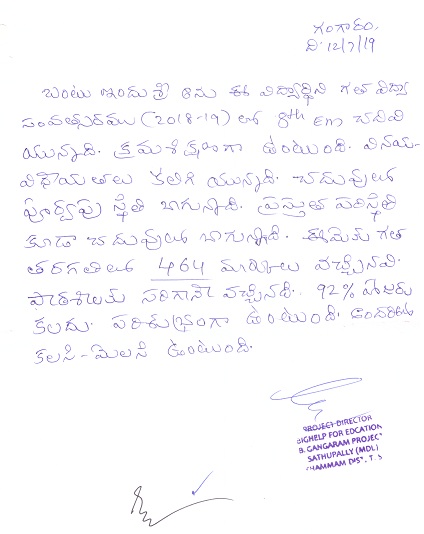 గంగారం.
ది: 12/7/19
బంటు ఇందు శ్రీ అను ఈ విద్యార్థిని గత విద్యా
సంవత్సరము (2018-19) లో 8th EM చదివి
యున్నాది. క్రమశిక్షణగా ఉంటుంది. వినయ
విధేయతలు కలిగి యున్నాది. చదువులో
పూర్వపు స్థితి బాగున్నాది. ప్రస్తుత పరిస్థితి
కూడా చదువులో బాగున్నాది. ఈమెకు గత
తరగతిలో 464 మార్కులు వచ్చినవి.
పాఠశాలకు సరిగానే వచ్చినది. 92% హాజరు
కలదు. పరిశుభ్రంగా ఉంటుంది. అందరితో
కలసి-మెలసి ఉంటుంది.
PROJECT DIRECTOR
BIGHELP FOR EDCATION
B. GANGARAM PROJECT
SATHUPALLY (MDL)
KHAMMAM DIST, T.S